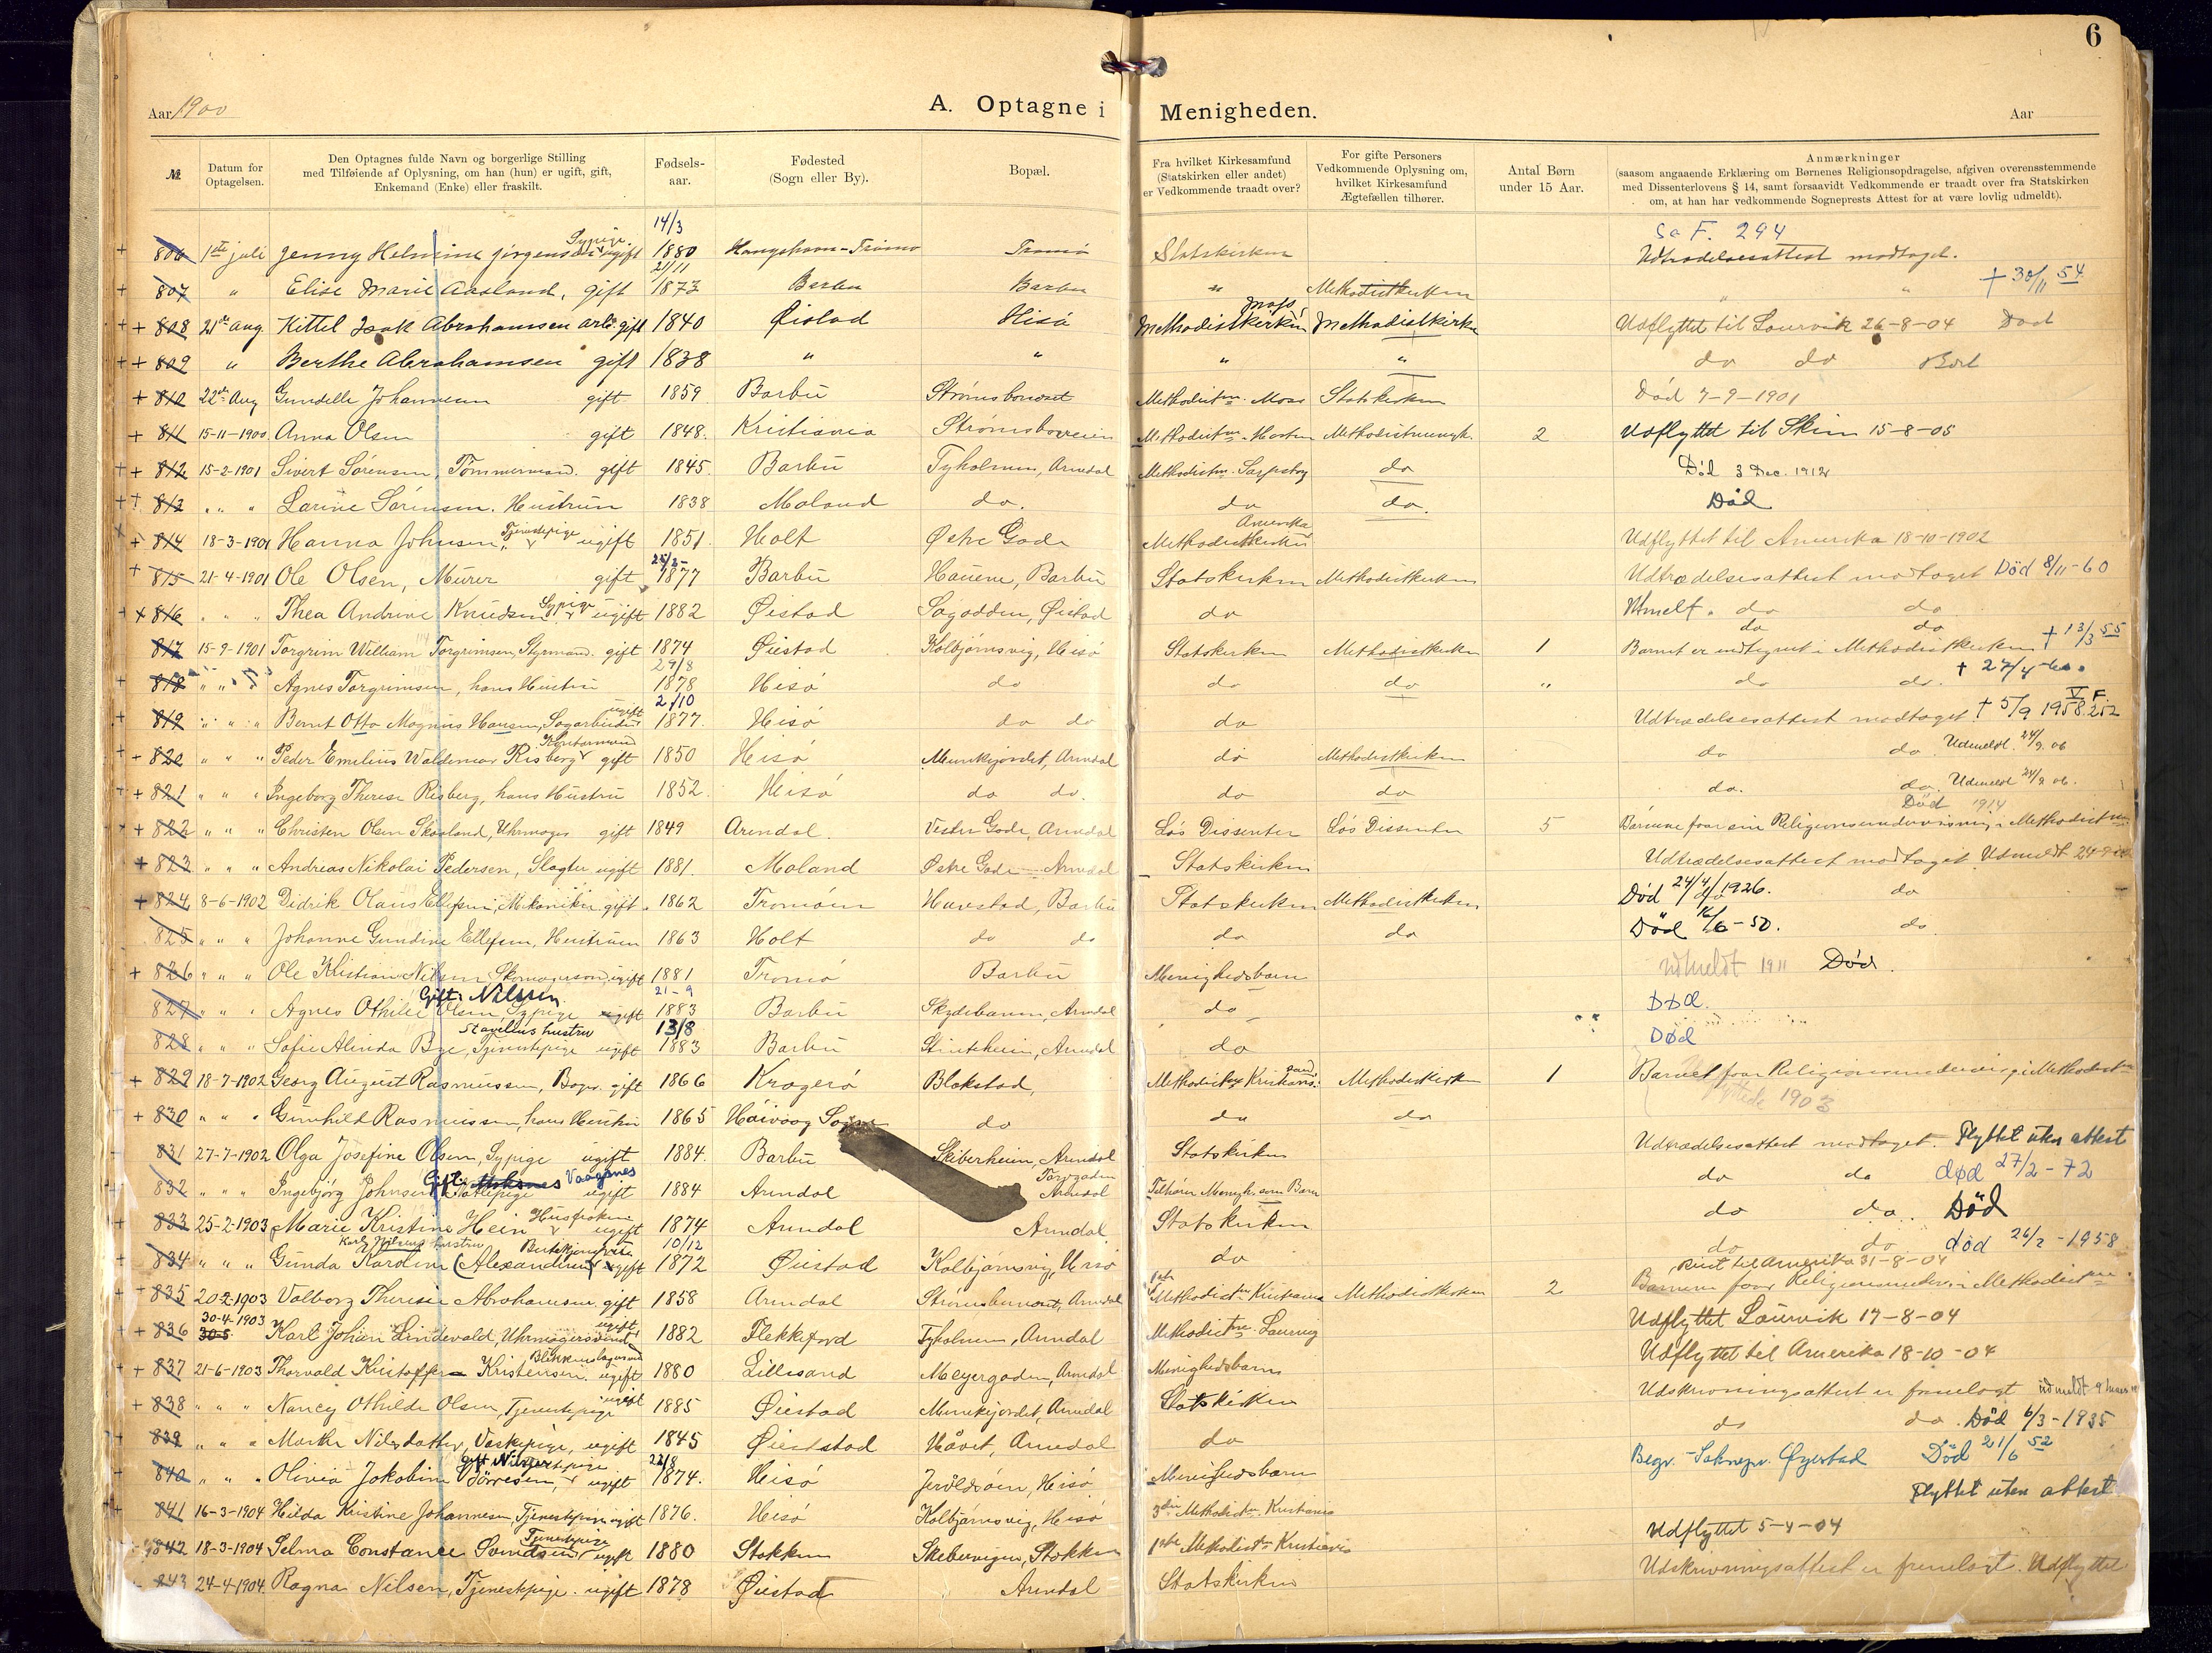 6
Aar 1900
A. Optagne i Menigheden.
Aar
№
Datum for Optagelsen.
Den Optagnes fulde Navn og borgerlige Stilling med Tilføiende af Oplysning, om han (hun) er ugift, gift, Enkemand (Enke) eller fraskilt.
Fødsels-aar.
Fødested (Sogn eller By).
Bopæl.
Fra hvilket Kirkesamfund (Statskirken eller andet) er Vedkommende traadt over?
For gifte Personers Vedkommende Oplysning om, hvilket Kirkesamfund Ægtefællen tilhører.
Antal Børn under 15 Aar.
Anmærkninger (saasom angaaende Erklæring om Børnenes Religionsopdragelse, afgiven overensstemmende med Dissenterlovens § 14, samt forsaavidt Vedkommende er traadt over fra Statskirken om, at han har vedkommende Sogneprests Attest for at være lovlig udmeldt).
14/3 F. 294
+ 806 1ste juli Jenny Helmine Jørgensen Sypige ugift 1880 Tromø Statskirken Udtrædelsesattest modtaget.
21/11
+ 807 " Elise Marie Aasland, gift 1873 Barbu Barbu " Methodistkirken " " + 30/11 54
+ + 808 21de Aug Kittel Isak Abrahamsen arb. gift 1840 Øistad Hisø Methodistkirken Moss Methodistkirke Udflyttet til Laurvik 26-8-04 Død
+ + 809 " Berthe Abrahamsen gift 1838 " " " " do do
+ + 810 22de Aug Gundelle Johannesen gift 1859 Barbu Strømsbomoret Methodistm. Moss Statskirken Død 7-9-1901
+ + 811 15-11-1900 Anna Olsen gift 1848. Kristiania Methodistm. Horten Methodistmenigh. 2 Udflyttet til Skien 15-8-05
+ + 812 15-2-1901 Sivert Sørensen, Tømmermand. gift 1845. Barbu Tyholmen, Arendal Methodistm. Sarpsborg do Død 3 Dec. 1912
+ + 813 " " " Larine Sørensen. Hustruen 1838 Moland do. do do. Død
+ + 814 18-3-1901 Hanna Johnsen, Tjenestepige ugift 1851. Holt Østre Gade Methodistkirken Amerika Udflyttet til Amerika 18-10-1902
+ 815 21-4-1901 Ole Olsen, Murer gift 1877 Barbu Hauene, Barbu Statskirken Methodistkirken Udtrædelsesattest modtaget Død 8/11-60
+ + 816 " " " Thea Andrine Knudsen Sypige ugift 1882 Øistad Sagodden, Øistad do Utmelt. do do
817 15-9-1901 Torgrim William Torgrimsen, Styrmand. gift 1874 Øiestad Kolbjørnsvig, Hisø Statskirken Methodistkirken 1 do do Barnet er indtegnet i Methodistkirken + 13/3 55
29/8
818 " " " Agnes Torgrimsen, hans Hustru 1878 Hisø do do do " do do. + 27/4-60.
2/10
+ 819 " " " Bernt Otto Magnus Hansen, Sagarbeider ugift 1877. Hisø do do do Udtrædelsesattest modtaget + 5/9 1958 V F. 252
+ + 820 " " " Peder Emelius Waldemar Risberg Kontormand gift 1850 Hisø Munkejordet, Arendal do Methodistkirken do do Udmeldt 24/9. 06
+ + 821 " " " Ingeborg Therese Risberg, hans Hustru 1852. Hisø do do. do do do. do. Udmeldt 24/9 06.
+ + 822 " " " Christen Olsen Skaaland, Uhrmager gift 1849 Arendal. Vestre Gade, Arendal Løs Dissenter Løs Dissenter 5 Død 1914 Børnene faar sin Religionsundervisning i Methodistm.
+ 823 " " " Andreas Nikolai Pedersen, Slagter ugift 1881. Moland Østre Gade - Arendal Statskirken Udtrædelsesattest modtaget Udmeldt
+ 824 8-6-1902 Didrik Olaus Ellefsen, Mekaniker gift. 1862 Tromøen Havestad, Barbu Statskirken Methodistkirken Død 24/4 1926. do
825 " " " Johanne Gundine Ellefsen, Hustruen 1863 Holt do do do do Død 16/6-50. do
+ 826 " " " Ole Kristian Nilsen Skomagersvend ugift 1881 Tromø Barbu Menighedsbarn udmeldt 1911 Død.
Gift: Nilssen. 21-9
827 " " " Agnes Othilie Olsen, Sypige ugift 1883 Barbu Skydebanen, Arendal do Død.
Stavellus hustru 13/8
828 " " " Sofie Alinda Bye, Tjenestepige ugift 1883 Barbu Stintehein, Arendal do Død
+ 829 18-7-1902 Georg August Rasmussen, Bager. gift 1866 Kragerø Blakstad, Methodistkirken 1 Barnet faar Religionsundervisng. i Methodistm
flyttede 1903
+ 830 " " " Gunhild Rasmussen, hans Hustru 1865 Høivaag Sogn do do do
831 27-7-1902 Olga Josefine Olsen, Sypige ugift 1884. Barbu Skiberheien, Arendal Statskirken Udtrædelsesattest modtaget. Flyttet uten attest
Gift: Vaagsnes
832 " " " Ingebjørg Johnsen ugift 1884 Arendal Torvgaden Arendal Tilhører Menigh. som Barn do do død 27/2-72
833 25-2-1903 Marie Kristine Hein Husfrøken ugift 1874 Arendal Arendal. Statskirken do do. Død
Karl Nilsens hustru 10/12
834 " " " Gunda Karoline (Alexandersen) ugift 1872 Øiestad Kolbjørnsvig, Hisø do do do død 26/2-1958
+ 835 20-2-1903 Valborg Therese Abrahamsen. gift 1858 Arendal Arendal Methodistm Kristiania Methodistkirken 2 Reist til Amerika 31-8-04 Barnene faar Religionsunderv. i Methodistm.
+ + 836 30-4-1903 30-5 Karl Johan Lindevald, Uhrmagersvend ugift 1882 Flekkefjord Tyholmen, Arendal Methodistm. Laurvig Udflyttet Laurvik 17-8-04
+ + 837 21-6-1903 Thorvald Kristoffer Kristensen Blikkenslagersvend ugift 1880 Lillesand Meyergaden, Arendal Menighedsbarn Udflyttet til Amerika 18-10-04
+ 838 " " " Nancy Othilde Olsen, Tjenestepige ugift 1885 Øiestad Munkejordet, Arendal Statskirken Udskrivningsattest er fremlagt udmeldt
+ 839 " " " Marthe Nilsdatter, Vaskepige, ugift 1845 Øiestad Håvet, Arendal do do do. Død 6/3-1935
gift Nilsen 22/8
+ 840 " " " Olivia Jakobine Børresen, ugift 1874. Hisø Jerølsøen, Hisø Menighedsbarn Begr. Øyestad Død 21/6 52
+ 841 16-3-1904 Hilda Kristine Johannesen Tjenestepige ugift 1876. Hisø Kolbjørnsvig, Hisø 3die Methodistm Kristiania Flyttet uten attest
842 18-3-1904 Selma Constance Svendsen Tjenestepige ugift 1880 Stokken Skebervigen, Stokken 1ste Methodistm Kristiania Udflyttet 5-4-04
843 24-4-1904. Ragna Nilsen, Tjenestepige. ugift 1878 Øiestad Arendal Statskirken Udskrivningsattest er fremlagt. Udflyttet